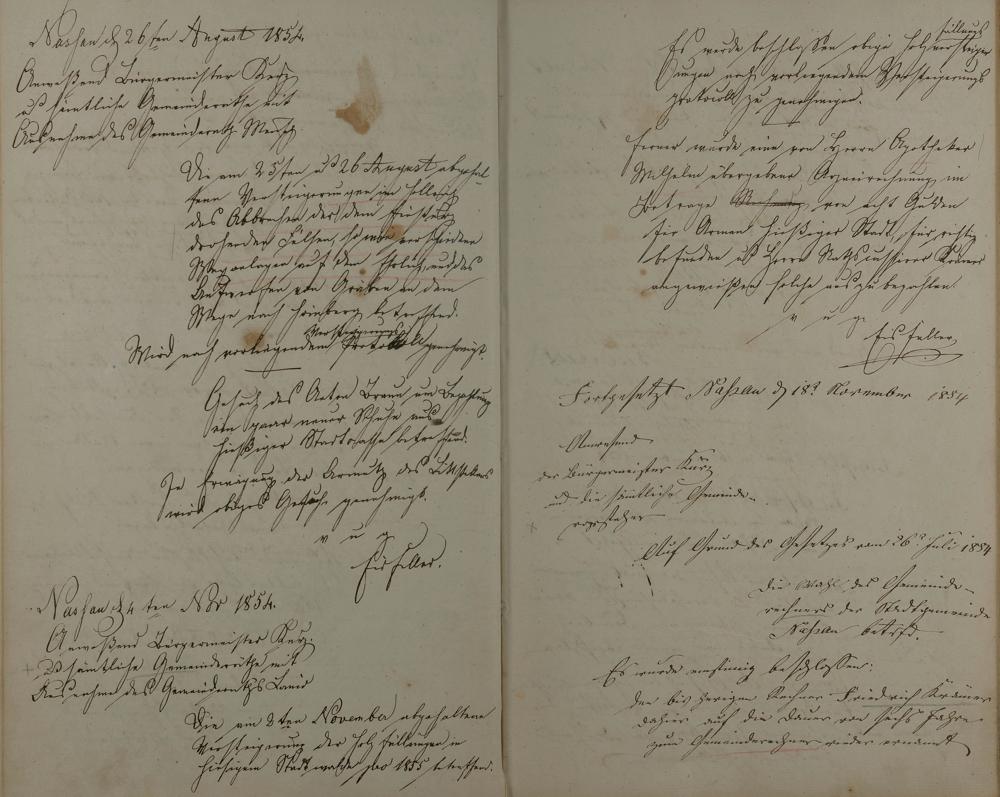 Nassau d 26ten August 1854.
Anweßend Bürgermeister Kurz
u sämtliche Gemeinderäthe mit
Ausnahme des Gemeinderaths
Die am 25ten u 26 August abgehal
tene Versteigerungen
des Abbrechen der dem Einsturz
drohenden Felsen, so wie verschiedene
Weganlagen auf dem und des
Auswerfen von Graben an dem
Wege nach betreffend.
Versteigerungs
Wird nach vorliegendem Protokoll genehmigt.
Gesuch des Anton Braun um Bezahlung
ein paar neuer Schuhe aus
hießiger Stadtcasse betreffend.
In Erwägung der Armuth des Bittstellers
wird obiges Gesuch genehmigt.
v u g
Nassau d 4ten Nbr 1854.
Anweßend Bürgermeister Kurz.
u sämtliche Gemeinderäthe mit
Ausnahme des Gemeinderaths
Die am 3ten November abgehaltene
Versteigerung der Holzfällungen in
hiesigem Stadtwalde pro 1855 betreffend.
fällungs
Es wurde beschlossen obige Holzversteiger
ungen nach vorliegendem Versteigerungs
protocoll zu genehmigen.
Ferner wurde eine von Herrn Apotheker
Wilhelm übergebene Arzneirechnung im
Betrage von acht Gulden
für Arme hießiger Stadt, für richtig
befunden u Herrn Krämer
angewießen solche auszubezahlen.
v u g
Fortgesetzt Nassau d 18t November 1854
Anwesend
der Bürgermeister Kurz
und die sämtliche Gemeinde-
vorsteher
Auf Grund des Gesetzes vom 26t Juli 1854
Die Wahl des Gemeinde-
rechners der Stadtgemeinde
Nassau betrfd.
Es wurde einstimig beschlossen:
den bisherigen Rechner Friedrich Krämer
dahier auf die Dauer von sechs Jahre
zum Gemeinderechner wieder ernannt